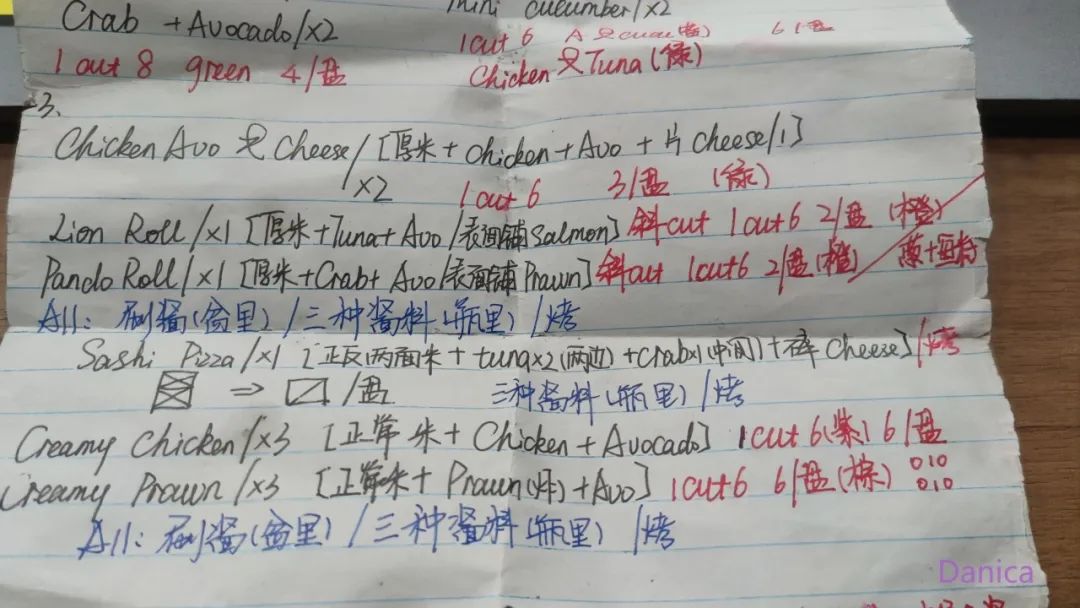 mini cucumber/x2
Crab +Avocado/x2
1 cut 6 6/盘
1 cut 8 green 4/盘
Chicken 只 Tuna (绿)
3.
Chicken Avo 只 Cheese/ [厚米 + chicken + Avo + 片 cheese/1]
x2 1 cut 6 3/盘 (绿)
Lion Roll /x1 [厚米+Tuna+ Avo /表面铺 Salmon] 斜cut 1 cut 6 2/盘 (橙)
Pando Roll/x1 [厚米+Crab+ Avo/表面铺 Prawn] 斜cut 1cut6 2/盘(橙) 葱+
All: 刷酱(盆里) / 三种酱料(瓶里) /烤
Sashi Pizza/x1 [正反(两面米 + tunax2(两边) +crabx1(中间)+碎 Cheese] /烤
⇒ /盘 三种酱料(瓶里) /烤
Creamy Chicken/x3 [正常米 + Chicken + Avocado] 1cut 6(紫) 6/盘
Creamy Prawn/x3 [正常米+ Prawn(炸) + Avo] 1cut6 6/盘(棕) 010
010
All: 刷酱(盆里) / 三种酱料(瓶里) /烤
Danica